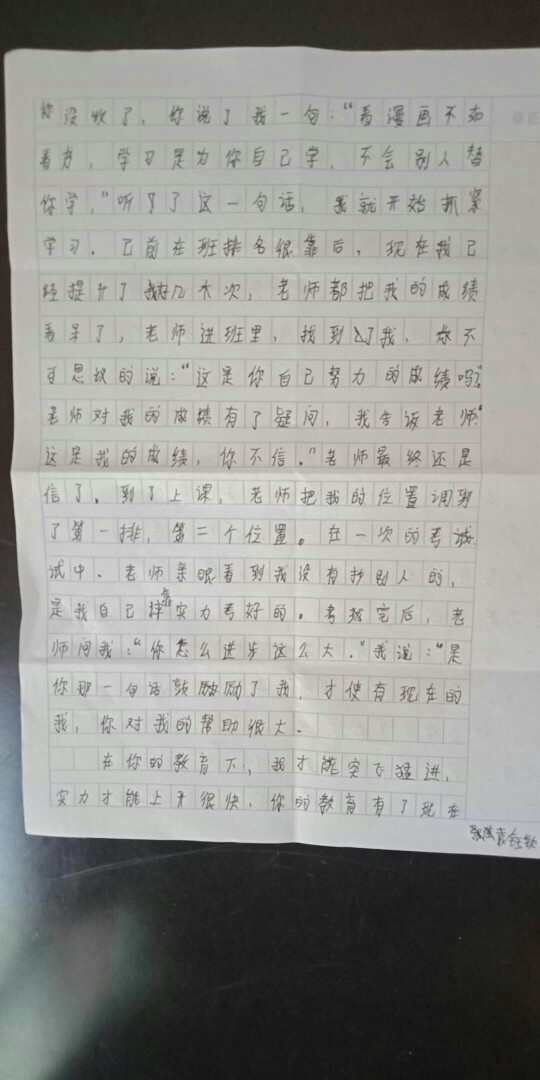 你没收了，你说了我一句：“看漫画不如
看书，学习是为你自己学，不会别人替
你学，”听了了这一句话，我就开始抓紧
学习．己前在班排名很靠后，现在我已
经提升了好几大次，老师都把我的成绩
看呆了，老师进班里，找到了我，你不
可思议的说：“这是你自己努力的成绩吗？”
老师对我的成绩有了疑问，我告诉老师“
这是我的成绩，你不信。”老师最终还是
信了．到了上课，老师把我的位置调到
了第一排，第二个位置。在一次的考诚
试中．老师亲眼看到我没有抄别人的，
是我自己靠实力考好的。考试完后，老
师问我：“你怎么进步这么大．”我说：“是
你那一句话鼓励励了我，才使有现在的
我，你对我的帮助很大．
在你的教育下，我才能突飞猛进，
实力才能上升很快．你的教育有了现在